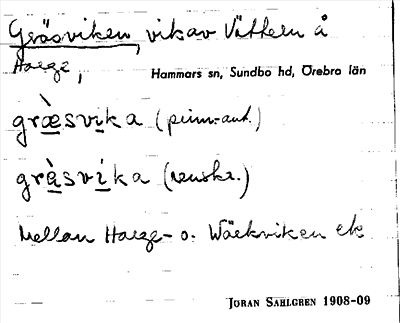 Gräsviken, vik av Vättern å
Harge,
Hammars sn, Sundbo hd, Örebro län
græ̀svi̲ka (prim.-ant.)
grä̀svíka (renskr.)
Mellan Harge- o. Wäckviken ek
JÖRAN SAHLGREN 1908-09